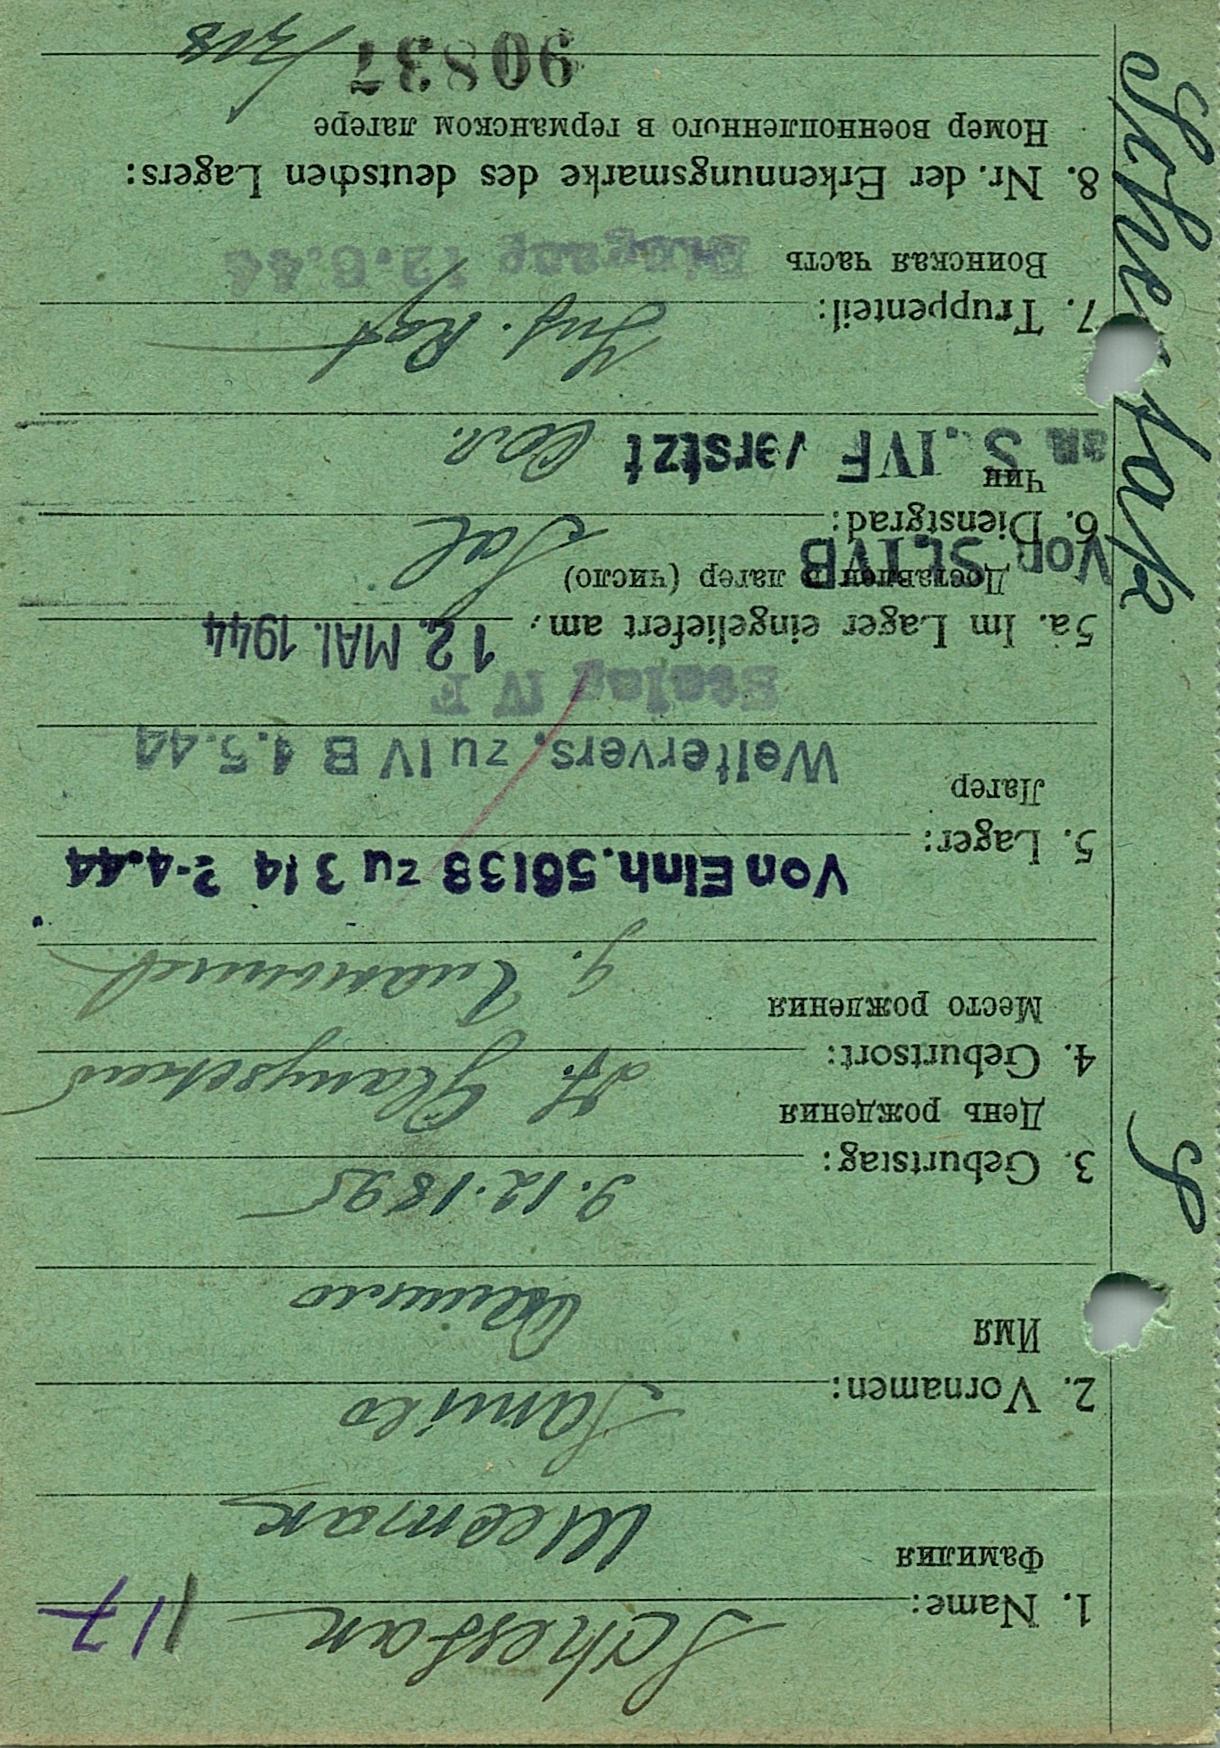 Schestak 117
1. Name:
Фамилия
Шестак
Danilo
2. Vornamen:
Имя
Данило
9.12.1895
3. Geburtstag:
День рождения
4. Geburtsort:
Место рождения
Von Einh. 56138 zu 314 2.4.44
5. Lager:
Лагер
Weitervers. zu IV B 4.5.44
Stalag IV F
12. MAI 1944
5a. Im Lager eingeliefert am:
Доставлен в лагер (число)
Von St. IVB
Sol
6. Dienstgrad:
Чин
an S. IVF verstzt
Сол.
Inf. Rgt
7. Truppenteil:
Воинская часть
12.6.44
8. Nr. der Erkennungsmarke des deutschen Lagers:
Номер военнопленного в германском лагере
90837
Schestak